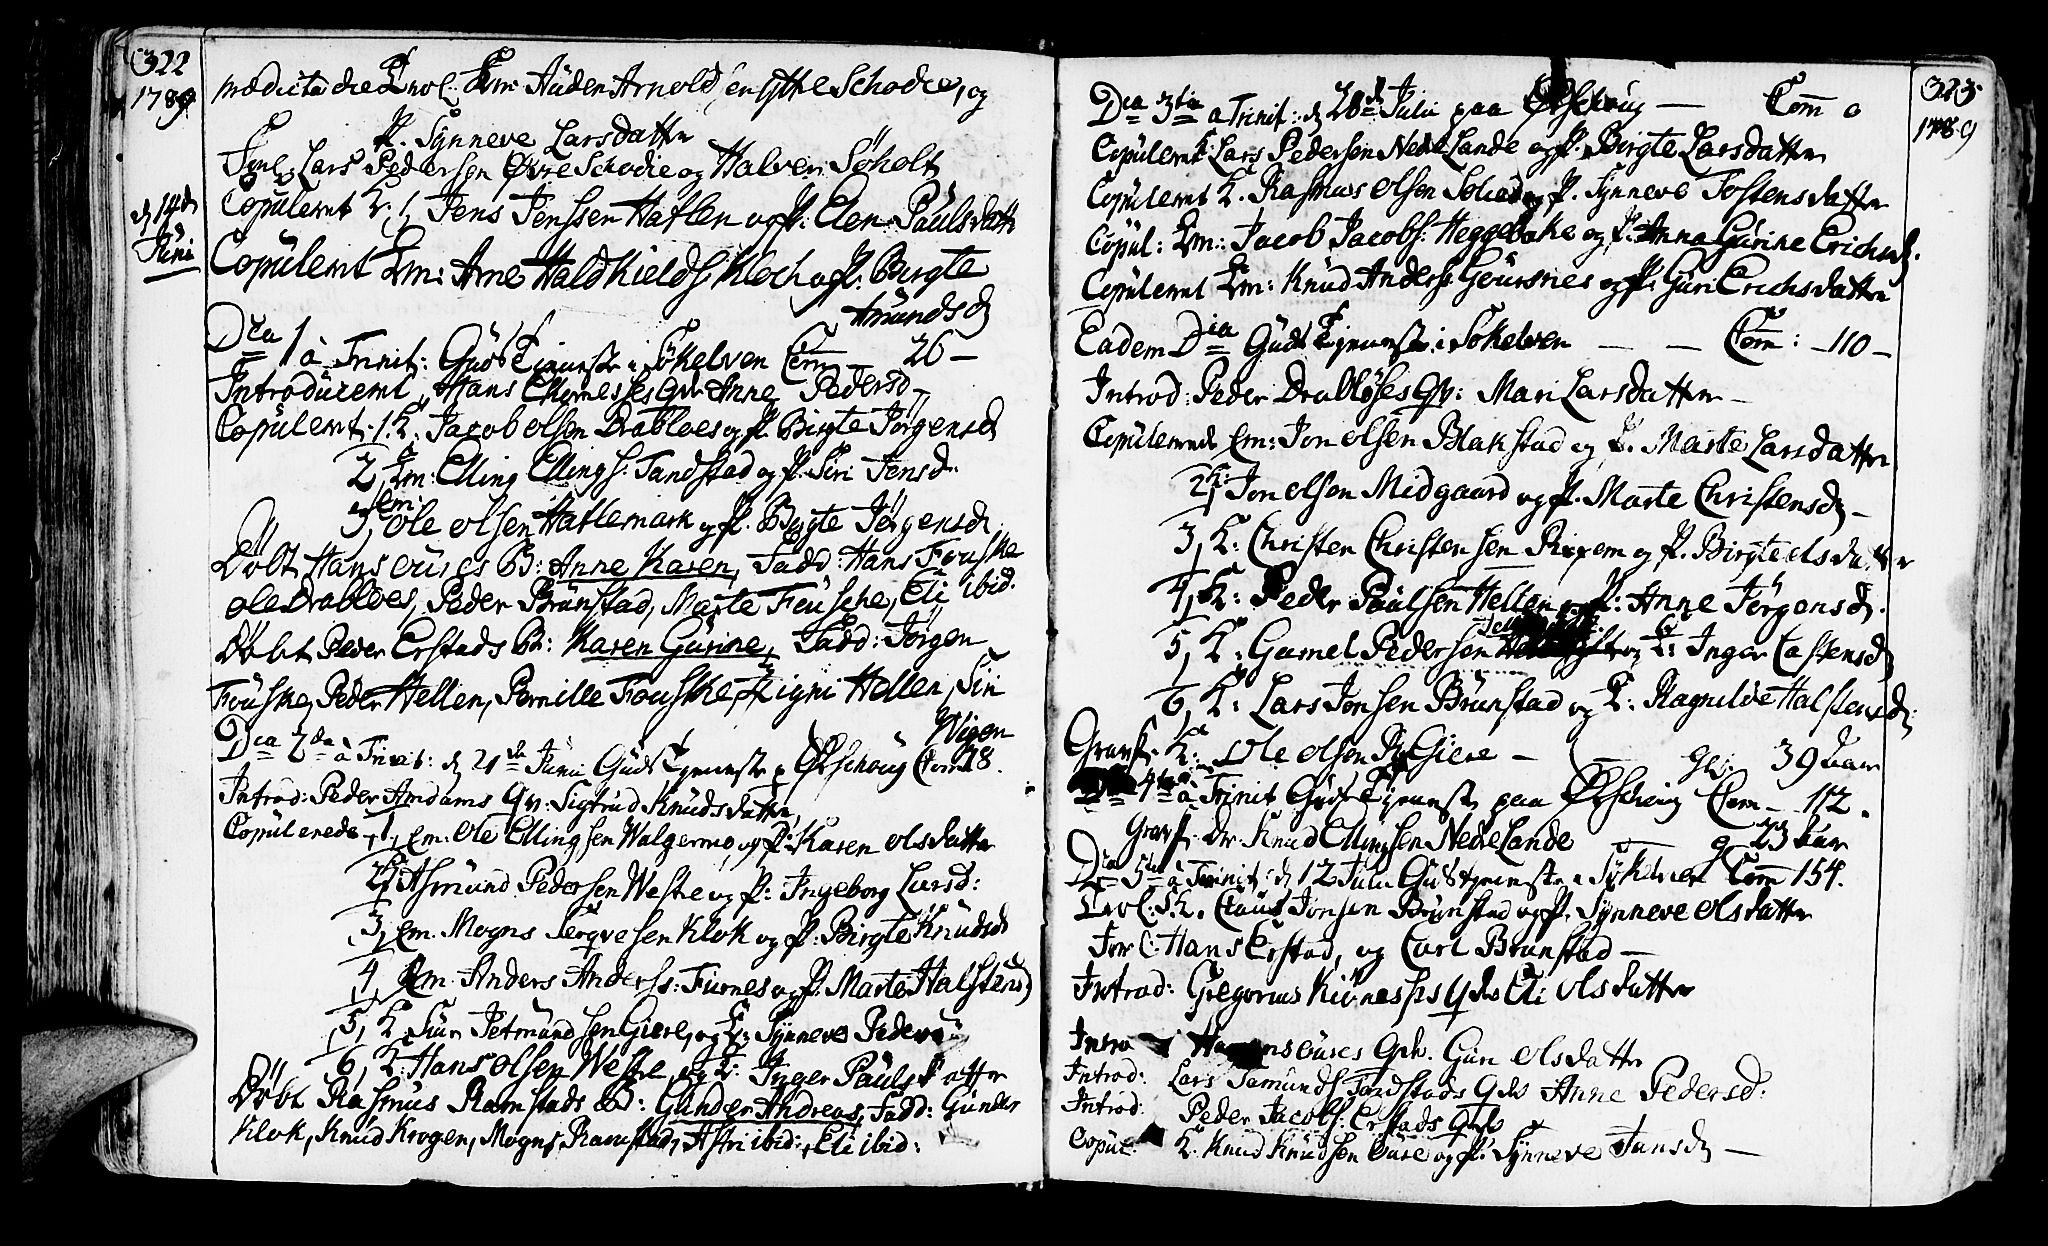 322
1789
prædicta die Trol. Em: Auden Arnolds en Ytre Schodie, og
P. Synneve Larsdatter
Lars Pedersen Øvre Schodie og Halver Søholt
d 14de
Junii
Copuleret K. Jens Jenssen Hatlen og P. Elen Paulsdattr
Copuleret Em: Arne Haldkields Kloch og P. Birgte
Amundsd
Dca 1 à Trinit: Guds Tieneste i Søkelven Com 26 -
Introduceret, Hans Qv: Anne Pedersd
Copuleret 1. K. Jacob Olsen Drabloes og P. Birgte Jørgensd
2, Em: Elling Ellings. Tandstad og P. Siri Jensd
3, Em: Ole Olsen Hatlemark og P. Birgte Jørgensd
Døbt Hans Eures B: Anne Karen, Fadd: Hans Fouske
Ole Drabloes, Peder Brunstad, Marte Fousche, Eli ibid.
Døbt Peder Erstads B: Karen Gurine, Fadd: Jørgen
Fouske, Peder Hellen, Pernille Fouske, Signi Hellen, Siri
Wigen
Dca 2da à Trinit: d 21de Junii Guds Tieneste p Ørschoug Com 28.
Introd: Peder Amdams Qv: Sigtrud Knudsdatter,
Copulerede 1, Em. Ole Ellingsen Walgermo og P. Karen Olsdatter
2, K Asmund Pedersen Weste og P: Ingeborg Larsd:
3, Em. Mogns Sergvesen Klok og P: Birgte Knudsd
4, Em. Anders Anderss: Furnes og P. Marte Halstensd
5, K. Siur Jetmundsen Giere, og P: Synneve Peders
6, K: Hans Olsen Weste og P. Inger Paulsdatter
Døbt Rasmus Ramstads B: Gunder Andreas, Fadd: Gunder
Klok, Knud Krogen, Mogns Ramstad, Astri ibid:, Eli ibid:
323
1789
Dca 3tia à Trinit: d 28de Juni paa Ørschoug — Com 0
Copuleret K: Lars Pedersen Nedre Lande og P. Birgte Larsdatter
Copuleret K. Rasmus Olsen Solnes og P. Synneve Tostensdatter
Copul: Em: Jacob Jacobs: Heggebake og P. Anna Gurine Erichsd.
Copuleret Em: Knud Anders: Geursnes og P. Guri Erichsdatter
Eadem Dca Guds Tieneste i Søkelven — — Com: 110 -
Introd: Peder Drabløses Qv: Mari Larsdatter -
Copulerede Em: Jon Olsen Blakstad og P. Marte Larsdatter
2, K: Jon Olsen Midgaard og P. Marte Christensd -
3, K: Christen Christensen Rixem og P. Birgte Olsdatter
4, K: Peder Paulsen Hellen og P: Anne Jørgensd.
5, K: Gamel Pedersen og E: Inger Castensd
6, K: Lars Jonsen Brunstad og E: Ragnilde Halstensd
Gravf. K: Ole Olsen Giere — gl. 39 Aar
4ta à Trinit Guds Tieneste paa Ørschoug Com - 112.
Gravf. Dr. Knud Ellingsen Nedre Lande g 23 Aar
Dca 5ta à Trinit: d 12 Julii Gudstjeneste i Søkelven Com 154.
Trol: K. Claus Jonsen Brunstad og P. Synneve Olsdatter
For C: Hans Erstad, og Carl Brunstad —
Introd: Gregorius Kivnes's Qv: Eli Olsdatter
Introd Eures Qv. Guri Olsdatter
Introd: Lars Tandstads Qv Anne Pedersd:
Introd: Peder Jacobs: Erstads Qv
Copul: K. Knud Knudsen Eure og P. Synneve Jansd —